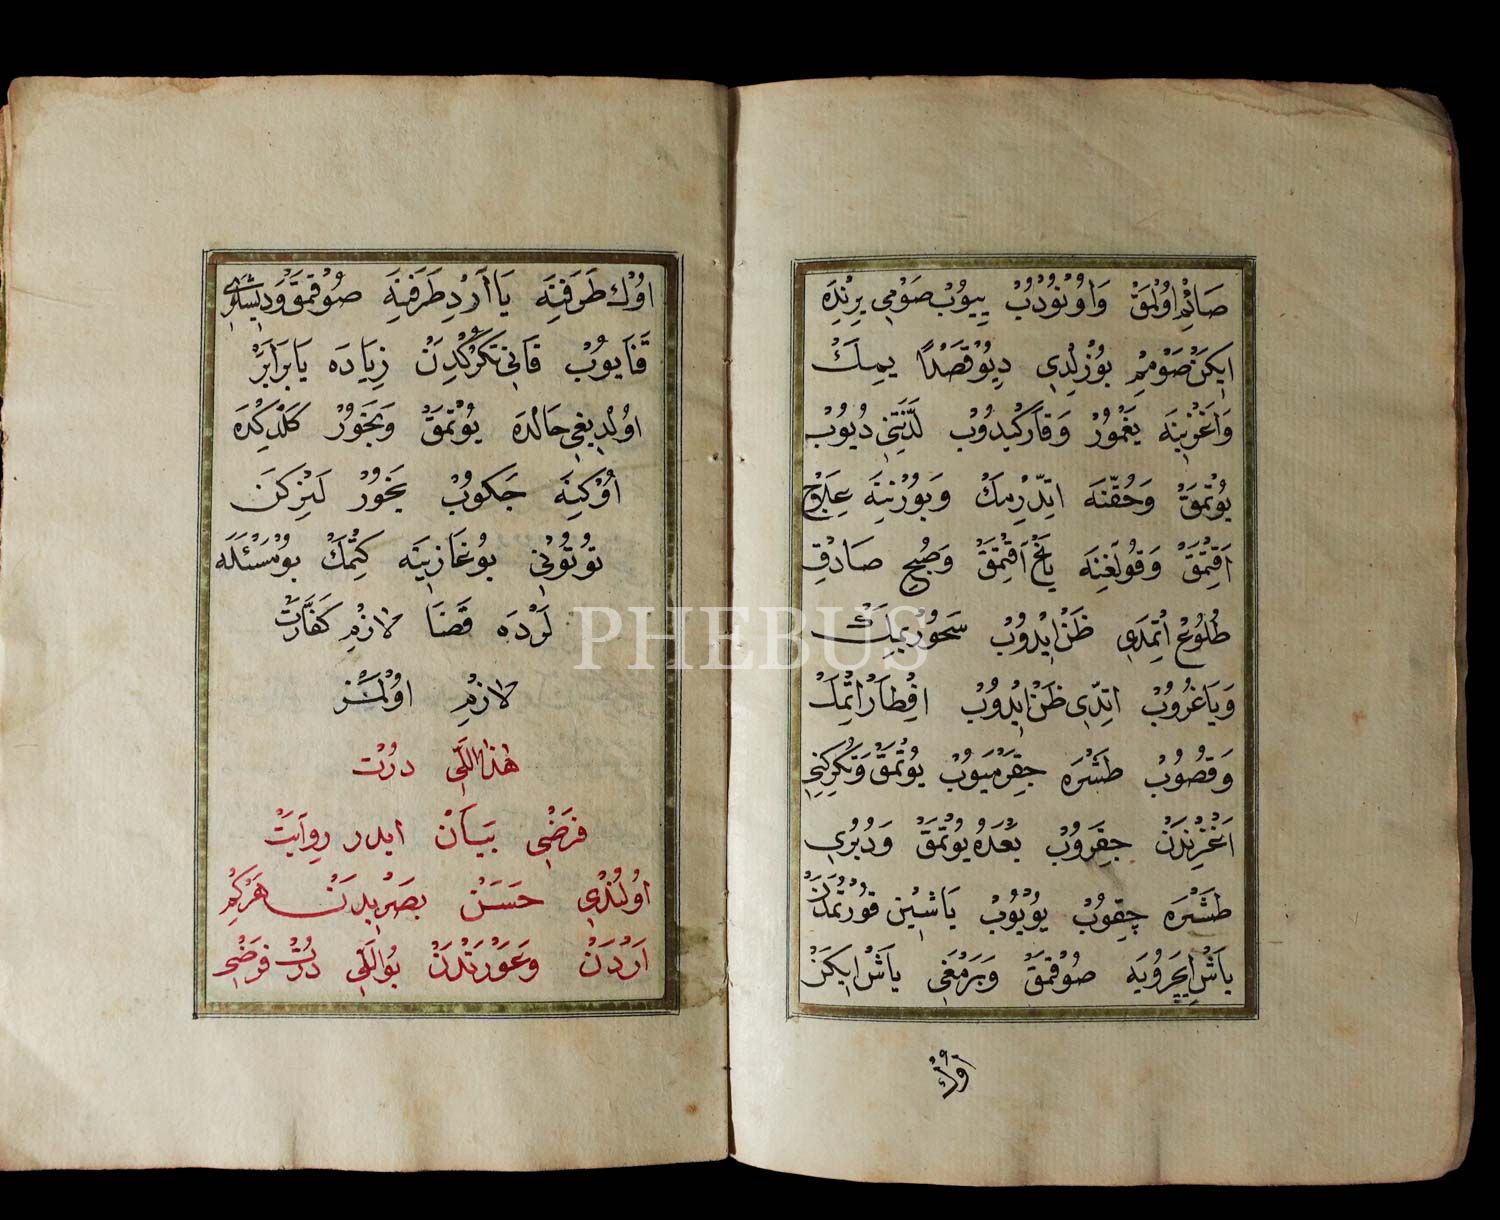 صَائِمْ اوُلْمَقْ وَاوُنوُدُوبْ يِيوُبْ صَوْمِي يِرِنْدَه
ايكَنْ صَوْمُمْ بوُزُلْدِي دِيوُ قَصْدًا يِمِكْ
وَاَغْزِينَه يَغْمُورْ وَقَارْ كِيدوُبْ لَذَّتِنِي دُيوُبْ
يوُتْمَقْ وَحُقْنَه اِتْدِرْمِكْ وَبوُرْنِنَه عِلَاجْ
اَقِتْمَقْ وَقوُلَغِنَه يَاغْ اَقِتْمَقْ وَصُبْحِ صَادِقْ
طُلُوعْ اِتْمَدِي ظَنْ ايدوُبْ سَحُورْ يِمِكْ
وَيَا غُرُوبْ اِتْدِي ظَنْ ايدوُبْ افِطَارْ اِتْمِكْ
وَقُصُوبْ طَشْرَه چِقَرْمَيوُبْ يوُتْمَقْ وَتُكُرُكِنِي
اَغْزِنْدَنْ چِقَروُبْ بَعْدَه يوُتْمَقْ وَدُبُرِي
طَشْرَه چِقوُبْ يُويوُبْ يَاشِينْ قوُرُتْمَدَنْ
يَاشْ ايچَروُيَه صوُقْمَقْ وَپَرْمَغِي يَاشْ ايكَنْ
اوُكْ
اوُكْ طَرَفِنَه يَا اَرْدِ طَرَفِنَه صوُقْمَقْ وَدِيشْلَرِي
قَنَايوُبْ قَانِي تُكُرُكْدِنْ زِيَادَه يَا بَرَابَرْ
اوُلْدِيغِي حَالْدَه يوُتْمَقْ وَبَخُورْ كَلْدِكْدَه
اوُكِنَه چَكوُبْ بَخُورْ لَنِرْكَنْ
توُتوُنِي بوُغَازِينَه كِتْمَكْ بوُ مَسْئَلَه
لَرْدَه قَضَا لَازِمْ كَفَّارَتْ
لَازِمْ اوُلْمَزْ
هٰذَا اللِّي دُرْتْ
فَرْضِي بَيَانْ ايدر رِوَايَتْ
اوُلُنْدِي حَسَنْ بَصْرِيدَنْ هَرْكِمْ
اَرْدَنْ وَعَوْرَتْدَنْ بوُ اللِّي دُرْتْ فَرْضِي
PHEBUS